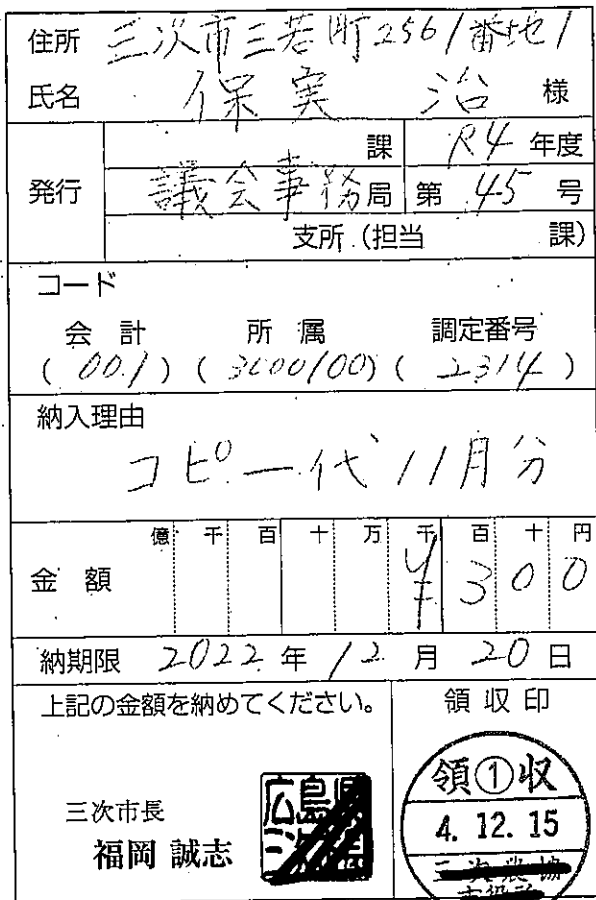 住所 三次市三若町2561番地1
氏名 保実 治 様
発行
課 R4 年度
議会事務局 第 45 号
支所 (担当 課)
コード
会計 所属 調定番号
(001) (3000100) (2314)
納入理由
コピー代 11月分
億 千 百 十 万 千 百 十 円
金額 ¥300
納期限 2022年12月20日
上記の金額を納めてください。
領収印
三次市長
福岡 誠志
広島県
領①収
4.12.15